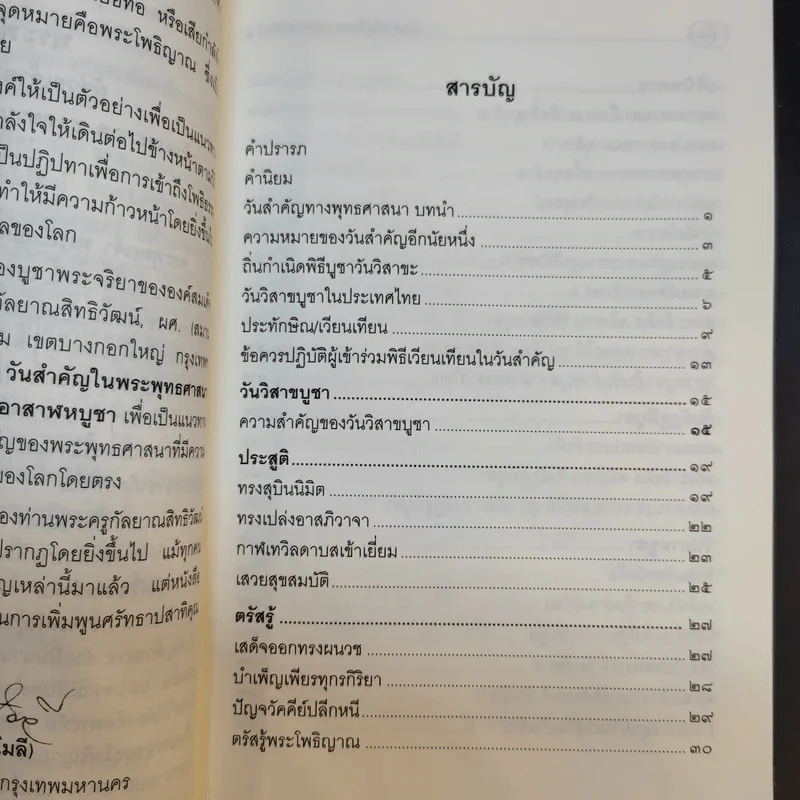 หรือเสียกำลัง
จุดหมายคือพระโพธิญาณ
ย
งค์ให้เป็นตัวอย่างเพื่อเป็นแนวทาง
กำลังใจให้เดินต่อไปข้างหน้าตาม
เป็นปฏิปทาเพื่อการเข้าถึงโพธิ
ทำให้มีความก้าวหน้าโดยยิ่งขึ้น
ลของโลก
องบูชาพระจริยาขององค์สมเด็จ
กัลยาณสิทธิวัฒน์, ผศ.
ม เขตบางกอกใหญ่ กรุงเทพ
วันสำคัญในพระพุทธศาสนา
อาสาฬหบูชา เพื่อเป็นแนวทาง
ญของพระพุทธศาสนาที่มีความ
ของโลกโดยตรง
องท่านพระครูกัลยาณสิทธิวัฒน์
ปรากฏโดยยิ่งขึ้นไป แม้ทุกคน
ญเหล่านี้มาแล้ว แต่หนังสือ
นการเพิ่มพูนศรัทธาปสาทิคุณ
โมลี)
กรุงเทพมหานคร
สารบัญ
คำปรารภ
คำนิยม
วันสำคัญทางพุทธศาสนา บทนำ ๑
ความหมายของวันสำคัญอีกนัยหนึ่ง ๓
ถิ่นกำเนิดพิธีบูชาวันวิสาขะ ๕
วันวิสาขบูชาในประเทศไทย ๖
ประทักษิณ/เวียนเทียน ๙
ข้อควรปฏิบัติผู้เข้าร่วมพิธีเวียนเทียนในวันสำคัญ ๑๓
วันวิสาขบูชา ๑๕
ความสำคัญของวันวิสาขบูชา ๑๕
ประสูติ ๑๙
ทรงสุบินนิมิต ๑๙
ทรงเปล่งอาสภิวาจา ๒๒
กาฬเทวิลดาบสเข้าเยี่ยม ๒๓
เสวยสุขสมบัติ ๒๕
ตรัสรู้ ๒๗
เสด็จออกทรงผนวช ๒๗
บำเพ็ญเพียรทุกรกิริยา ๒๘
ปัญจวัคคีย์ปลีกหนี ๒๙
ตรัสรู้พระโพธิญาณ ๓๐